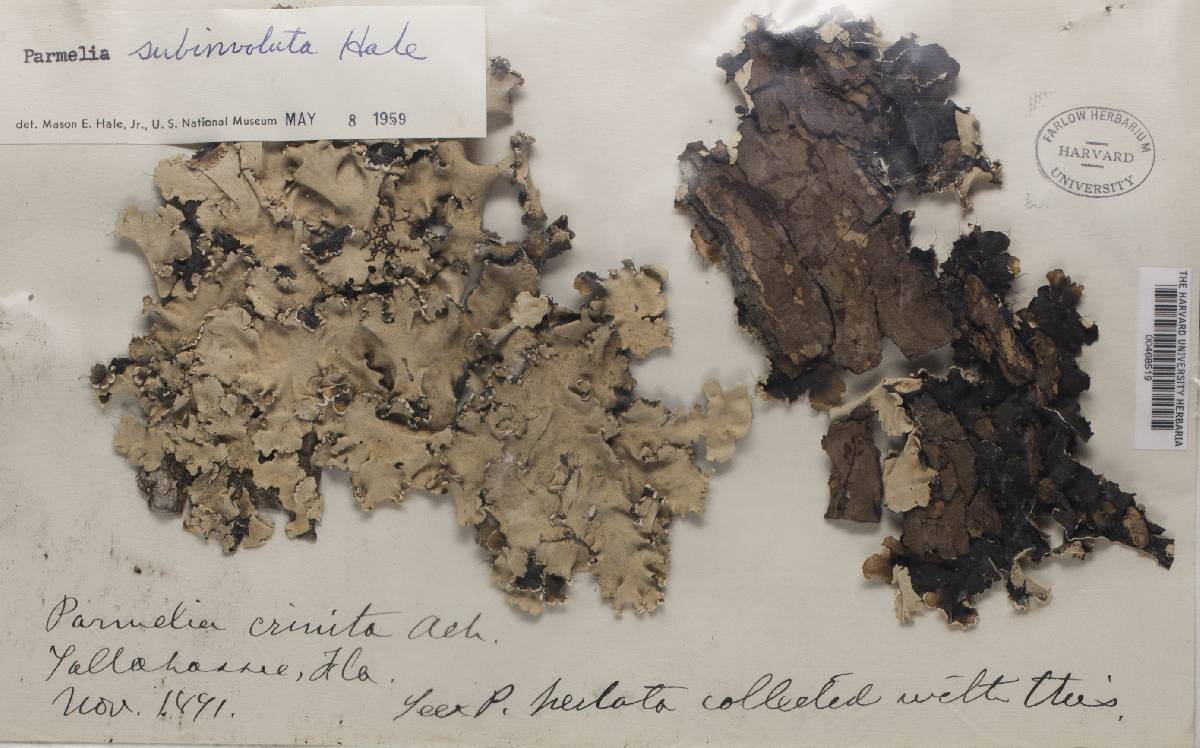 Parmelia subinvoluta Hale
det. Mason E. Hale, Jr., U. S. National Museum MAY 8 1959
FARLOW HERBARIUM
HARVARD
UNIVERSITY
THE HARVARD UNIVERSITY HERBARIA
00468519
Parmelia crinita Ach.
Tallahassee, Fla.
Nov. 1891.
See P. perlata collected with this.